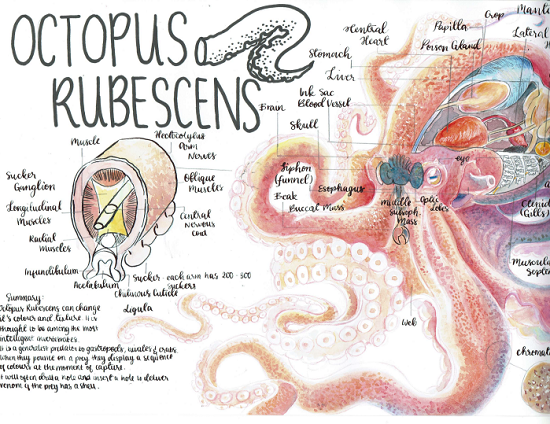 OCTOPUS
RUBESCENS
Ventral
Heart
Papilla
Crop
Mantl
Poison Gland
Lateral
Stomach
Liver
Ink Sac
Blood Vessel
Brain
Skull
Muscle
Hectocylus
Arm
Nerves
Sucker
Ganglion
Oblique
Muscles
Siphon
(funnel)
Esophagus
eye
Longitudinal
Muscles
Beak
Buccal Mass
Middle
Suboph.
Mass
Optic
Lobes
Ctenid
(Gills)
Central
Nervous
Cord
Radial
Muscles
Muscula
Septu
Infundibulum
Acetabulum
Sucker - each arm has 200 - 300
suckers
Chitinous Cuticle
Ligula
Web
chromat
Summary:
Octopus Rubescens can change
it's colour and texture. It is
thought to be among the most
intelligent invertebrates.
It is a generalist predator to gastropods, bivalves & crabs.
When they pounce on a prey, they display a sequence
of colours at the moment of capture.
It will often drill a hole and insert a hole to deliver
venom if the prey has a shell.